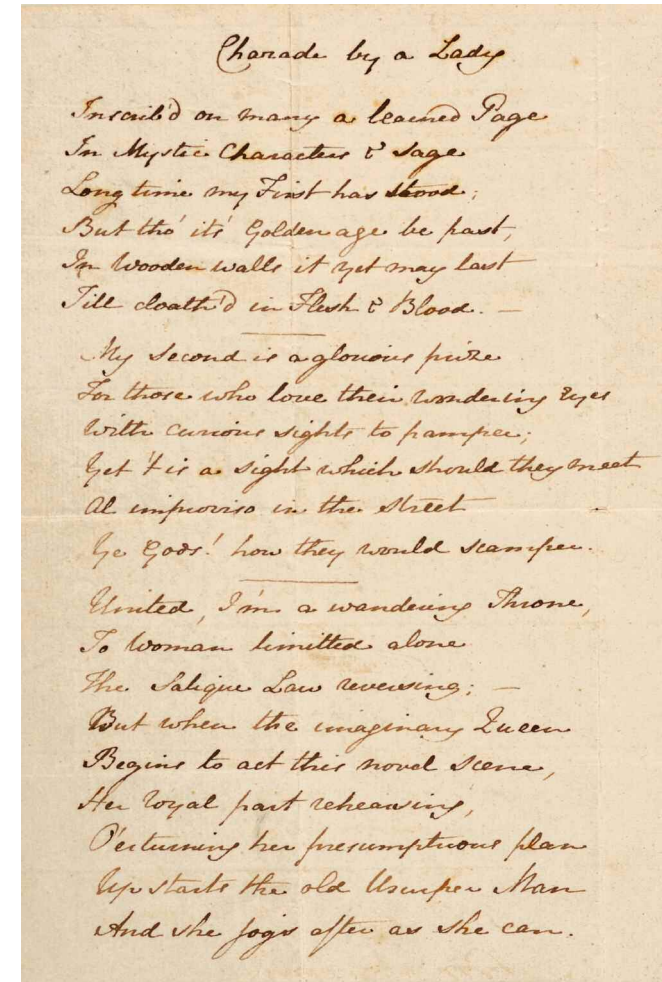 Charade by a Lady
Inscrib'd on many a learned Page
In Mystic Characters & Sage
Long time my First has stood;
But tho' it's Golden age be past,
In Wooden walls it yet may last
Till cloath'd in Flesh & Blood. —
My Second is a glorious prize
For those who love their wondering Eyes
With curious sights to pamper;
Yet 't is a sight which should they meet
Al improviso in the street
Ye Gods! how they would scamper.
United, I'm a wandering Throne,
To Woman limitted alone
The Salique Law reversing; —
But when the imaginary Queen
Begins to act this novel scene,
Her royal part rehearsing,
O'erturning her presumptuous plan
Up starts the old Usurper Man
And she jogs after as she can.